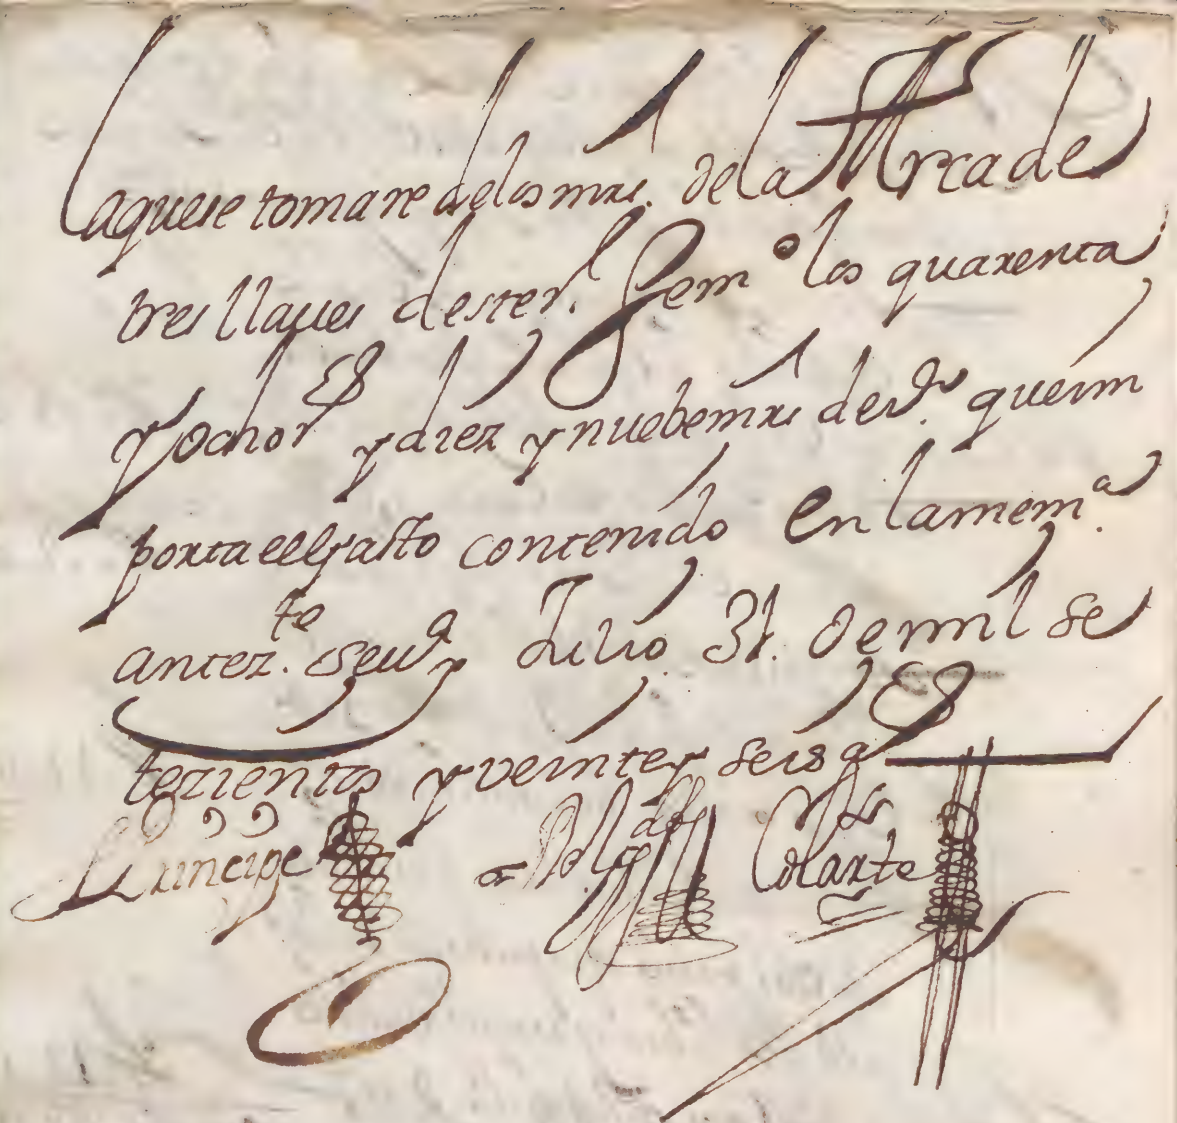 laquese tomare de los mrs. de la Arca de
tres llaues deste rl. Semo los quarenta
y ocho rs y diez y nuebe mrs de vn. que im
porta el gasto contenido en la mema.
antezte. Seua y Julio 31. de mil se
tezientos y veinte y seis as
Principe
Colarte